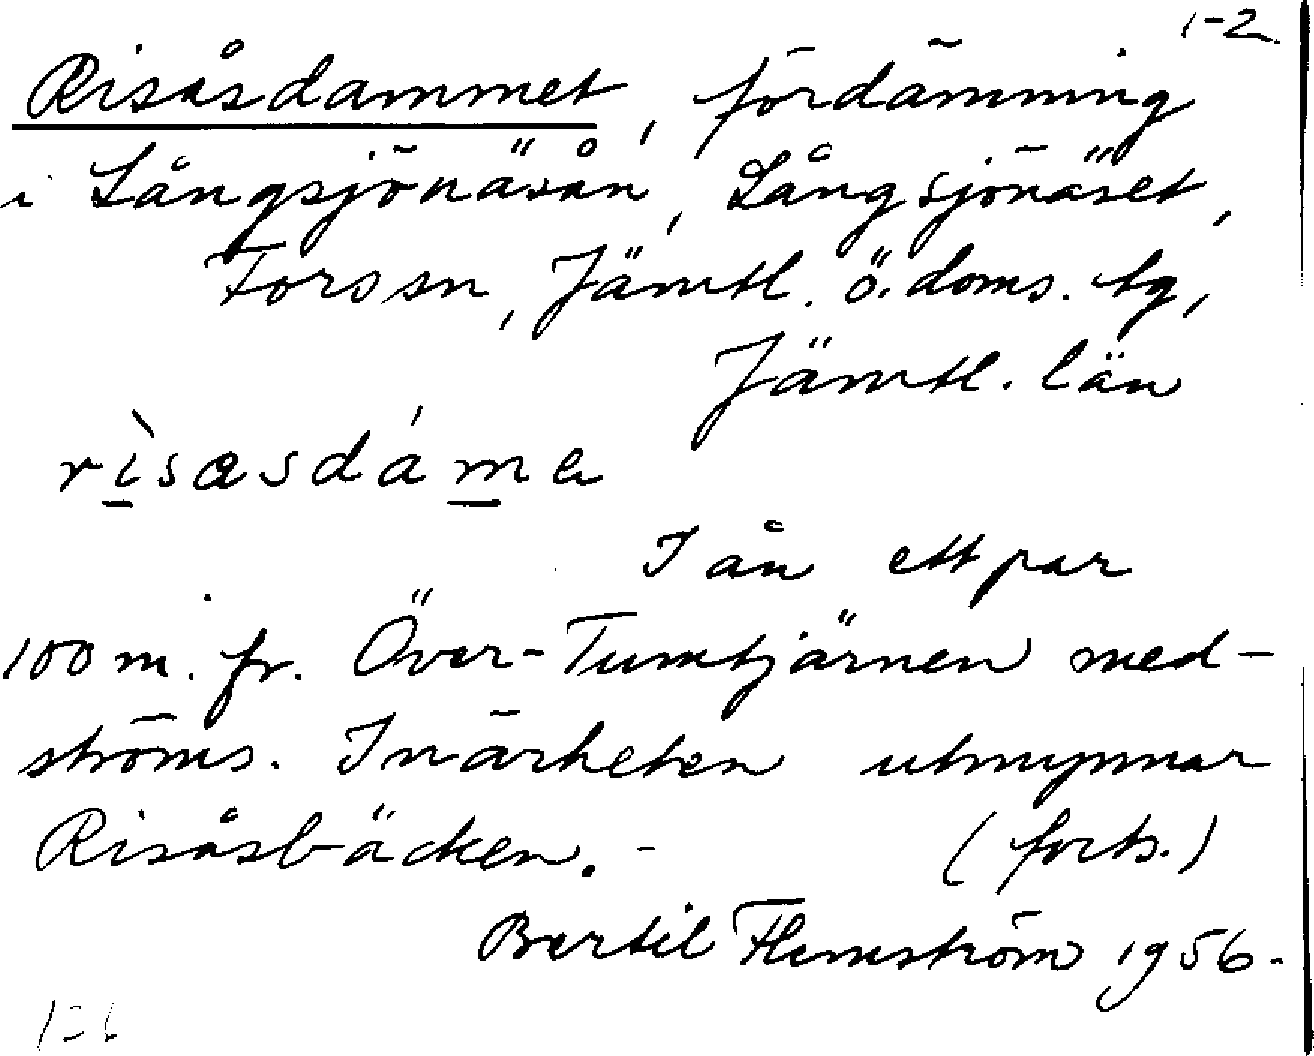 1-2
Risåsdammet, fördämning
i Långsjönäsån, Långsjönäset,
Fors sn, Jämtl. ö. doms. tg,
Jämtl. län
rìsasdáma
I ån ett par
100 m. fr. Över-Tumtjärnen med-
ströms. I närheten utmynnar
Risåsbäcken. - (forts.)
Bertil Flemström 1956.